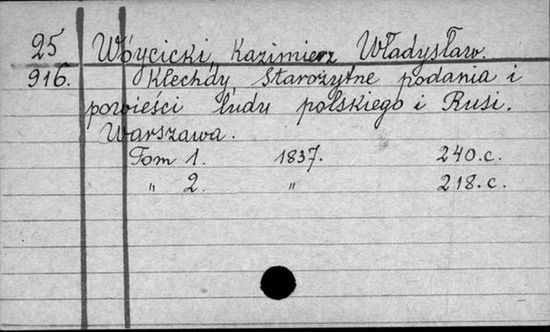 25 Wóycicki Kazimierz Władysław.
916. Klechdy Starożytne podania i
powieści ludu polskiego i Rusi.
Warszawa.
Tom 1. 1837. 240.c.
„ 2. „ 218.c.